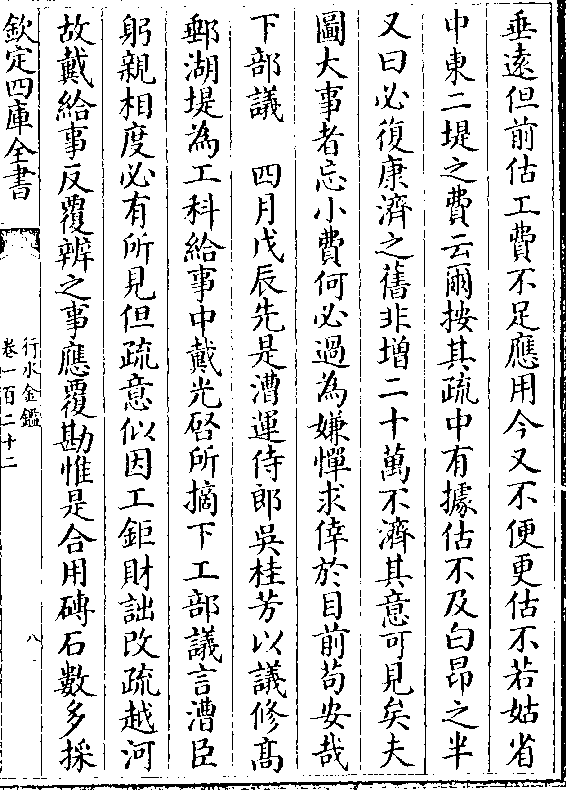 垂遠但前估工費不足應用今又不便更估不若姑省
中東二堤之費云爾按其疏中有據估不及白昂之半
又曰必復康濟之舊非增二十萬不濟其意可見矣夫
圖大事者忘小費何必過為嫌憚求倖於目前苟安哉
下部議　四月戊辰先是漕運侍郎吳桂芳以議修高
郵湖堤為工科給事中戴光啓所摘下工部議言漕臣
躬親相度必有所見但疏意似因工鉅財詘改疏越河
故戴給事反覆辨之事應覆勘惟是合用磚石數多採
欽定四庫全書
行水金鑑
卷一百二十二
八